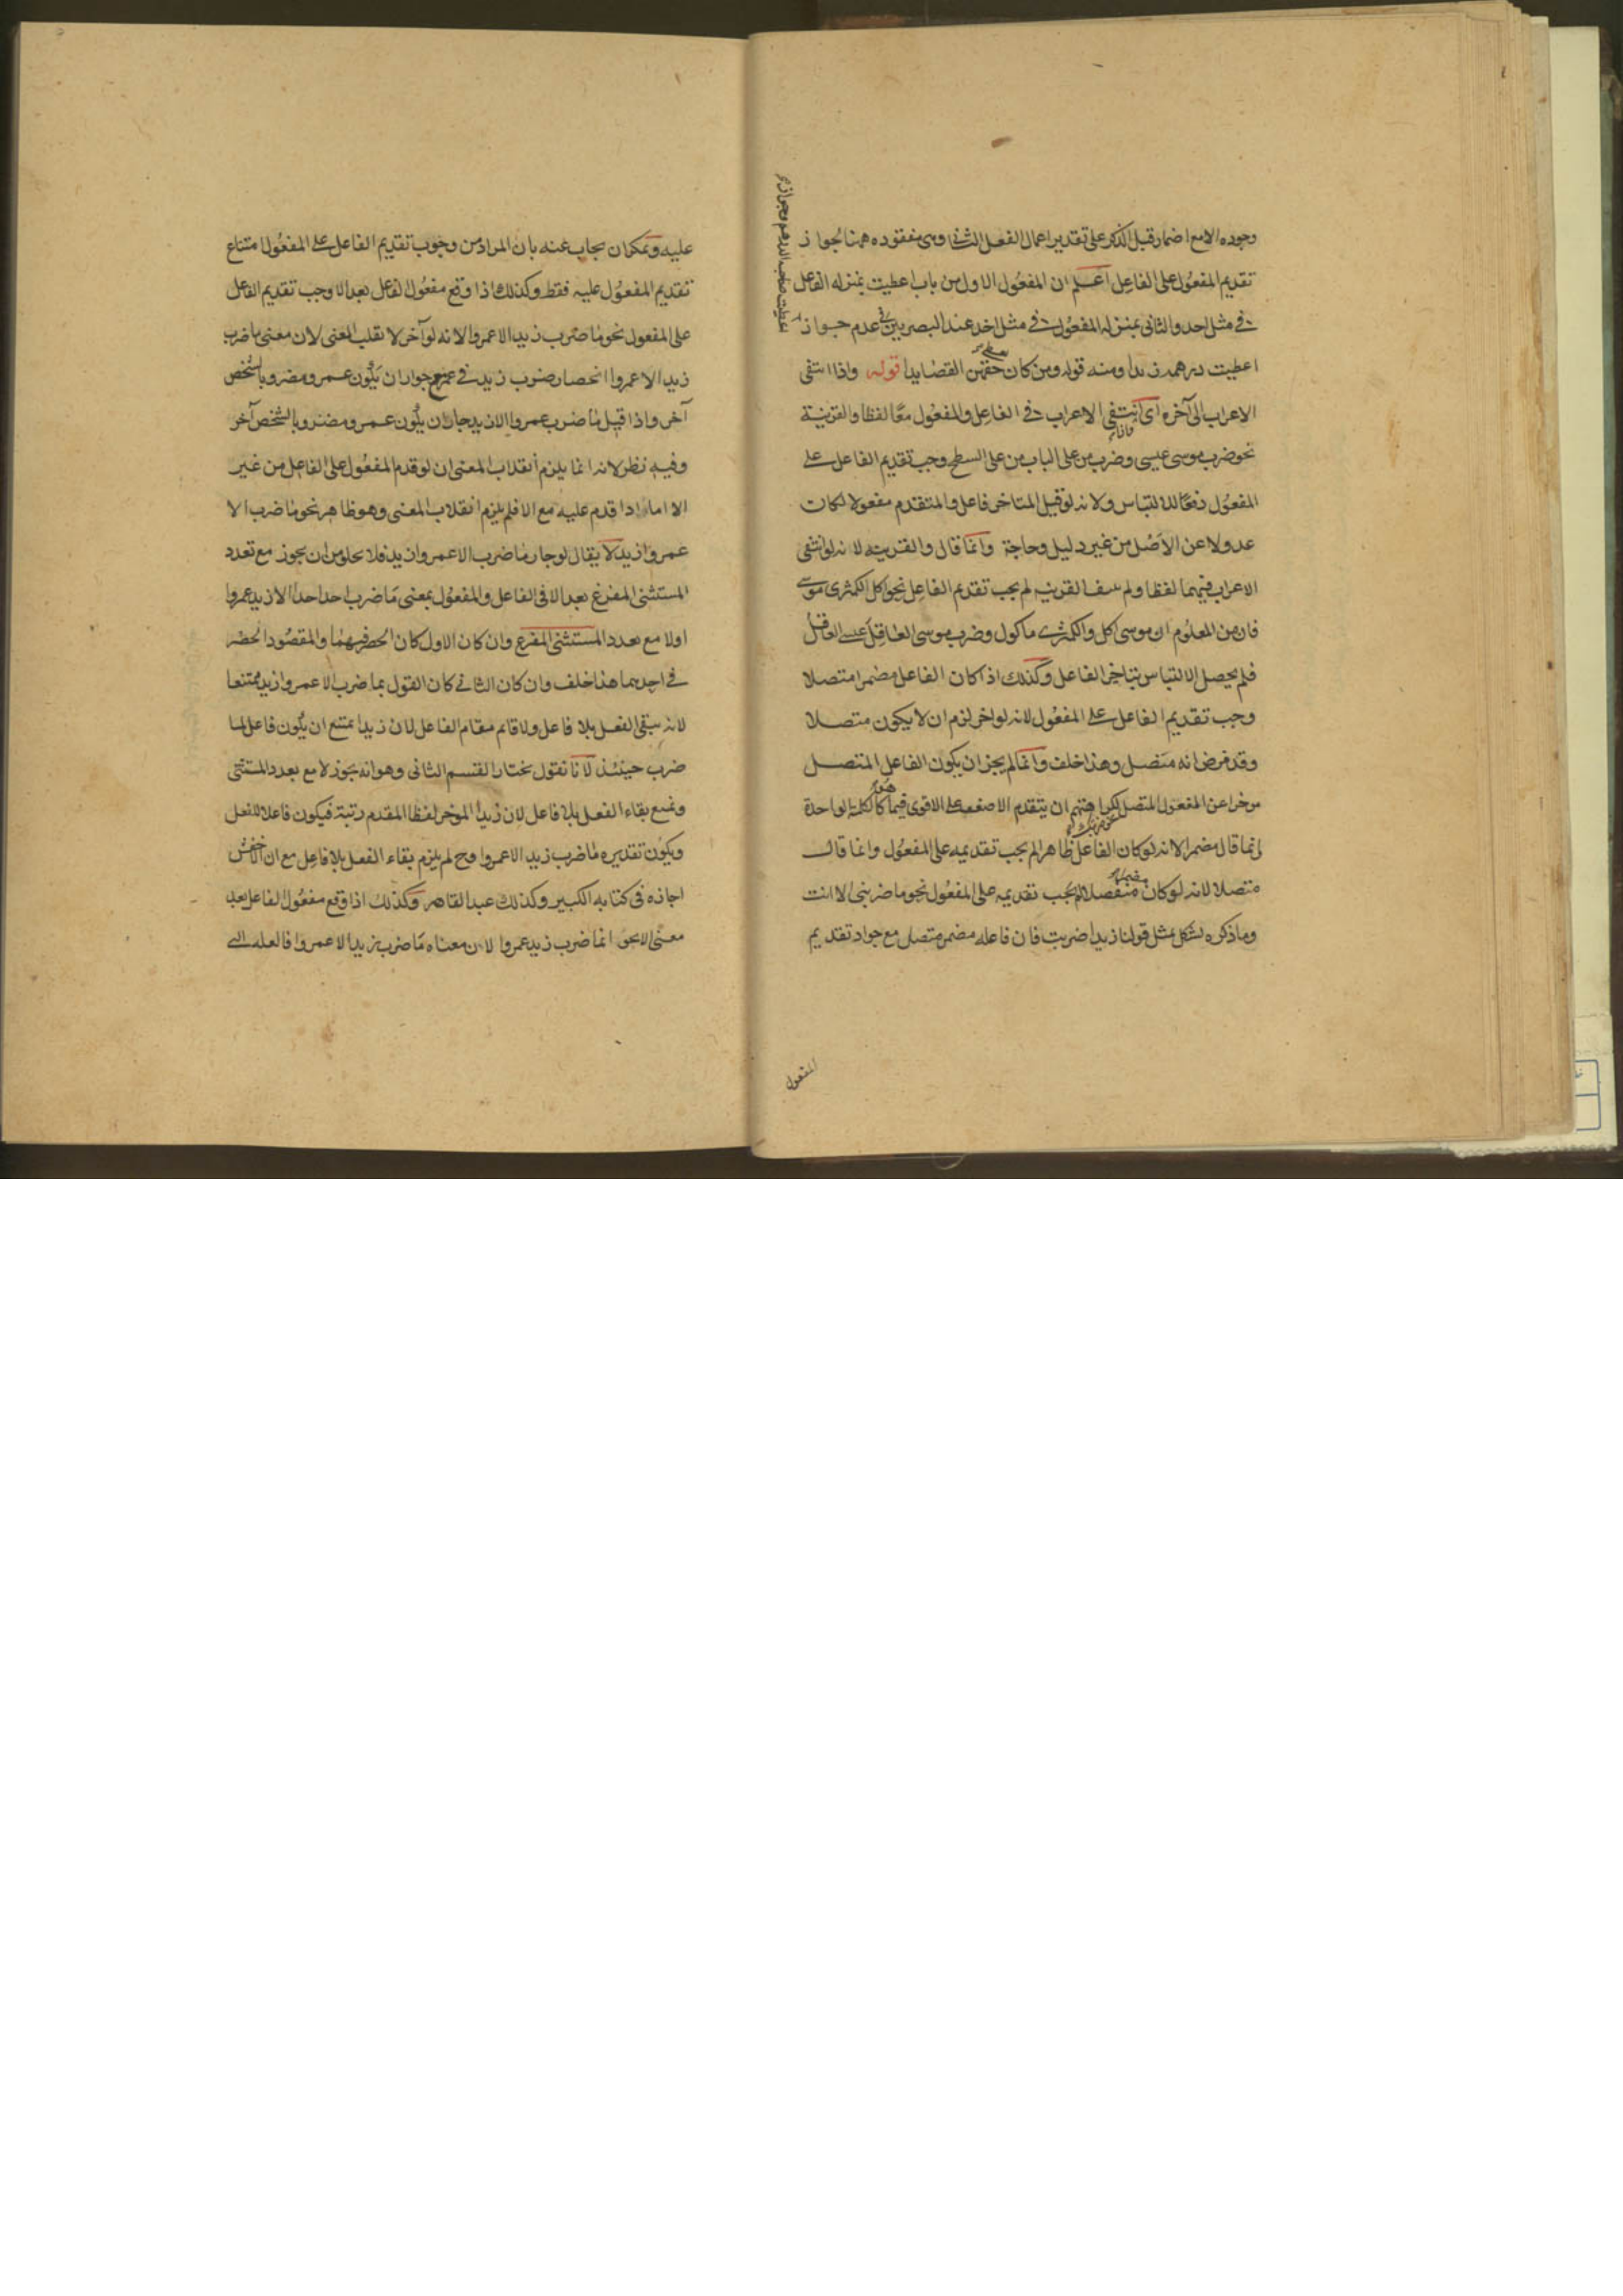 وجوده الا مع اضمار قبل الذكر على تقدير اعمال الفعل الثاني وهي مفقوده همنا لجواز
تقديم المفعول على الفاعل اعلم ان المفعول الاول من باب اعطيت بمنزله الفاعل
في مثل احد والثاني بمنزله المفعول في مثل اخد عند البصريين في عدم جواز
اعطيت درهمه زيدا ومنه قوله ومن كان حقهن القضايدا قوله واذا انتفى
الاعراب الى آخره اى انتفى الاعراب في الفاعل والمفعول معا لفظا والقرينة
نحو ضرب موسى عيسى وضرب من على الباب من على السطح وجب تقديم الفاعل على
المفعول دفعا للالتباس ولانه لو قيل المتاخر فاعل والمتقدم مفعولا لكان
عدولا عن الاصل من غير دليل وحاجة وانما قال والقرينه لانه لو انتفى
الاعراب فيهما لفظا ولم ينتف القرينه لم يجب تقديم الفاعل نحو اكل الكمثرى موسى
فان من المعلوم ان موسى اكل والكمثرى ماكول وضرب موسى العاقل عيسى العاقل
فلم يحصل الالتباس بتاخير الفاعل وكذلك اذا كان الفاعل مضمرا متصلا
وجب تقديم الفاعل على المفعول لانه لو اخر لزم ان لا يكون متصلا
وقد فرض انه متصل وهذا خلف وانما لم يجز ان يكون الفاعل المتصل
موخرا عن المفعول المتصل لكراهتهم ان يتقدم الاضعف على الاقوى فيما هو كالكلمة الواحدة
انما قال مضمرا لانه لو كان الفاعل ظاهرا لم يجب تقديمه على المفعول وانما قال
متصلا لانه لو كان منفصلا لم يجب تقديمه على المفعول نحو ما ضربنى الا انت
وما ذكره لشكل بمثل قولنا زيدا ضربت فان فاعله مضمر متصل مع جواز تقديم
المفعول
عليه ويمكن ان يجاب عنه بان المراد من وجوب تقديم الفاعل على المفعول امتناع
تقديم المفعول عليه فقط وكذلك اذا وقع مفعول الفاعل بعد الا وجب تقديم الفاعل
على المفعول نحو ما ضرب زيد الا عمروا لانه لو آخر لا نقلب المعنى لان معنى ما ضرب
زيد الا عمروا انحصار ضرب زيد في عمرو مع جواز ان يكون عمرو مضروبا لشخص
آخر واذا قيل ما ضرب عمروا الا زيد جاز ان يكون عمرو مضروبا لشخص آخر
وفيه نظر لانه انما يلزم انقلاب المعنى ان لو قدم المفعول على الفاعل من غير
الا اما اذا قدم عليه مع الا فلم يلزم انقلاب المعنى وهو ظاهر نحو ما ضرب الا
عمروا زيد لا يقال لو جاز ما ضرب الا عمروا زيد فلا يخلو من ان يجوز مع تعدد
المستثنى المفرغ بعد الا في الفاعل والمفعول بمعنى ما ضرب احد احدا الا زيد عمروا
اولا مع تعدد المستثنى المفرغ وان كان الاول كان الحصر فيهما والمقصود الحصر
في احدهما هذا خلف وان كان الثاني كان القول بما ضرب الا عمروا زيد ممتنعا
لانه يبقى الفعل بلا فاعل ولا قائم مقام الفاعل لان زيدا يمتنع ان يكون فاعل لما
ضرب حينئذ لانا نقول نختار القسم الثاني وهو انه يجوز لا مع تعدد المستثنى
ونمنع بقاء الفعل بلا فاعل لان زيدا الموخر لفظا المقدم رتبة فيكون فاعلا للفعل
ويكون تقديره ما ضرب زيد الا عمروا وح لم يلزم بقاء الفعل بلا فاعل مع ان الاخفش
اجازه في كتابه الكبير وكذلك عبد القاهر وكذلك اذا وقع مفعول الفاعل بعد
معنى الا نحو انما ضرب زيد عمروا لان معناه ما ضرب زيد الا عمروا فالعله التي